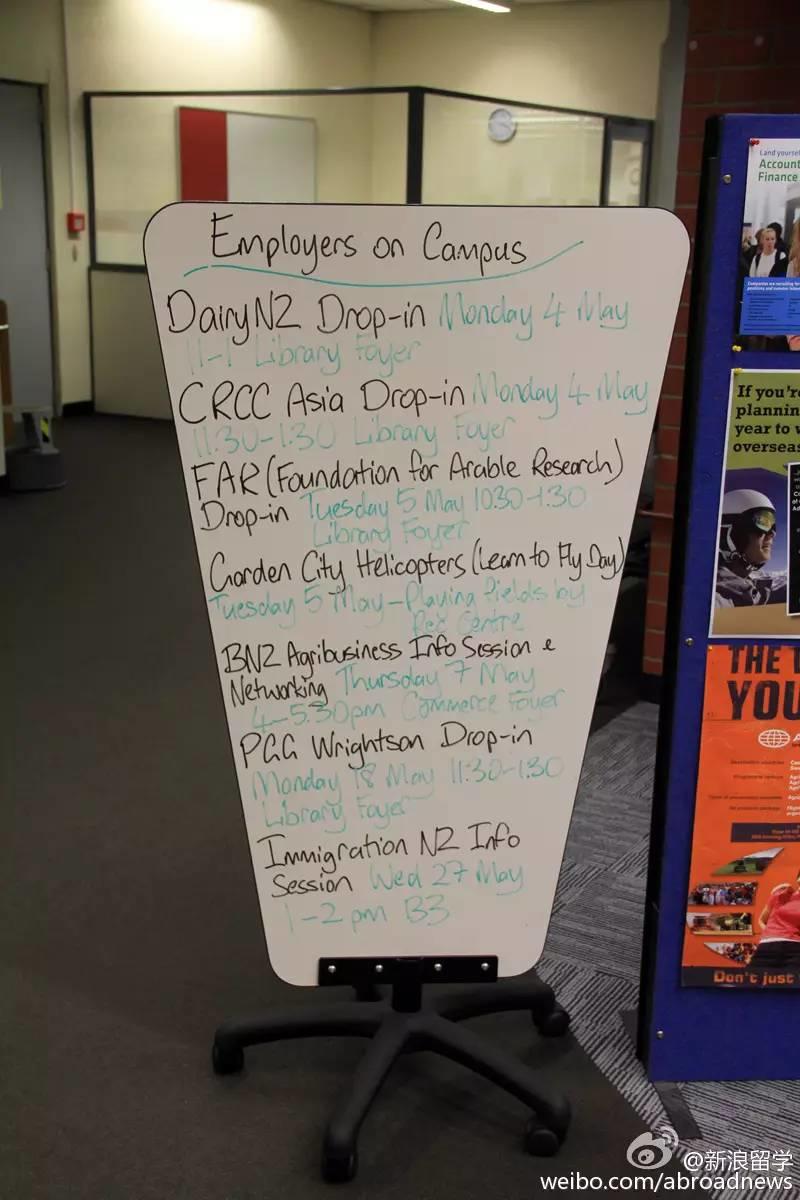 Employers on Campus
DairyNZ Drop-in Monday 4 May
11-1 Library Foyer
CRCC Asia Drop-in Monday 4 May
11:30-1:30 Library Foyer
FAR (Foundation for Arable Research)
Drop-in Tuesday 5 May 1030-1:30
Library Foyer
Garden City Helicopters (Learn to Fly Day)
Tuesday 5 May - Playing fields by
Rec Centre
BNZ Agribusiness Info Session &
Networking Thursday 7 May
4-5.30pm Commerce Foyer
PGG Wrightson Drop-in
Monday 18 May 11:30-1:30
Library Foyer
Immigration NZ Info
Session Wed 27 May
1-2 pm B3
Land yourself
Account
Finance
If you're
planning
year to
overseas
THE
YOU
Don't just
@新浪留学
weibo.com/abroadnews